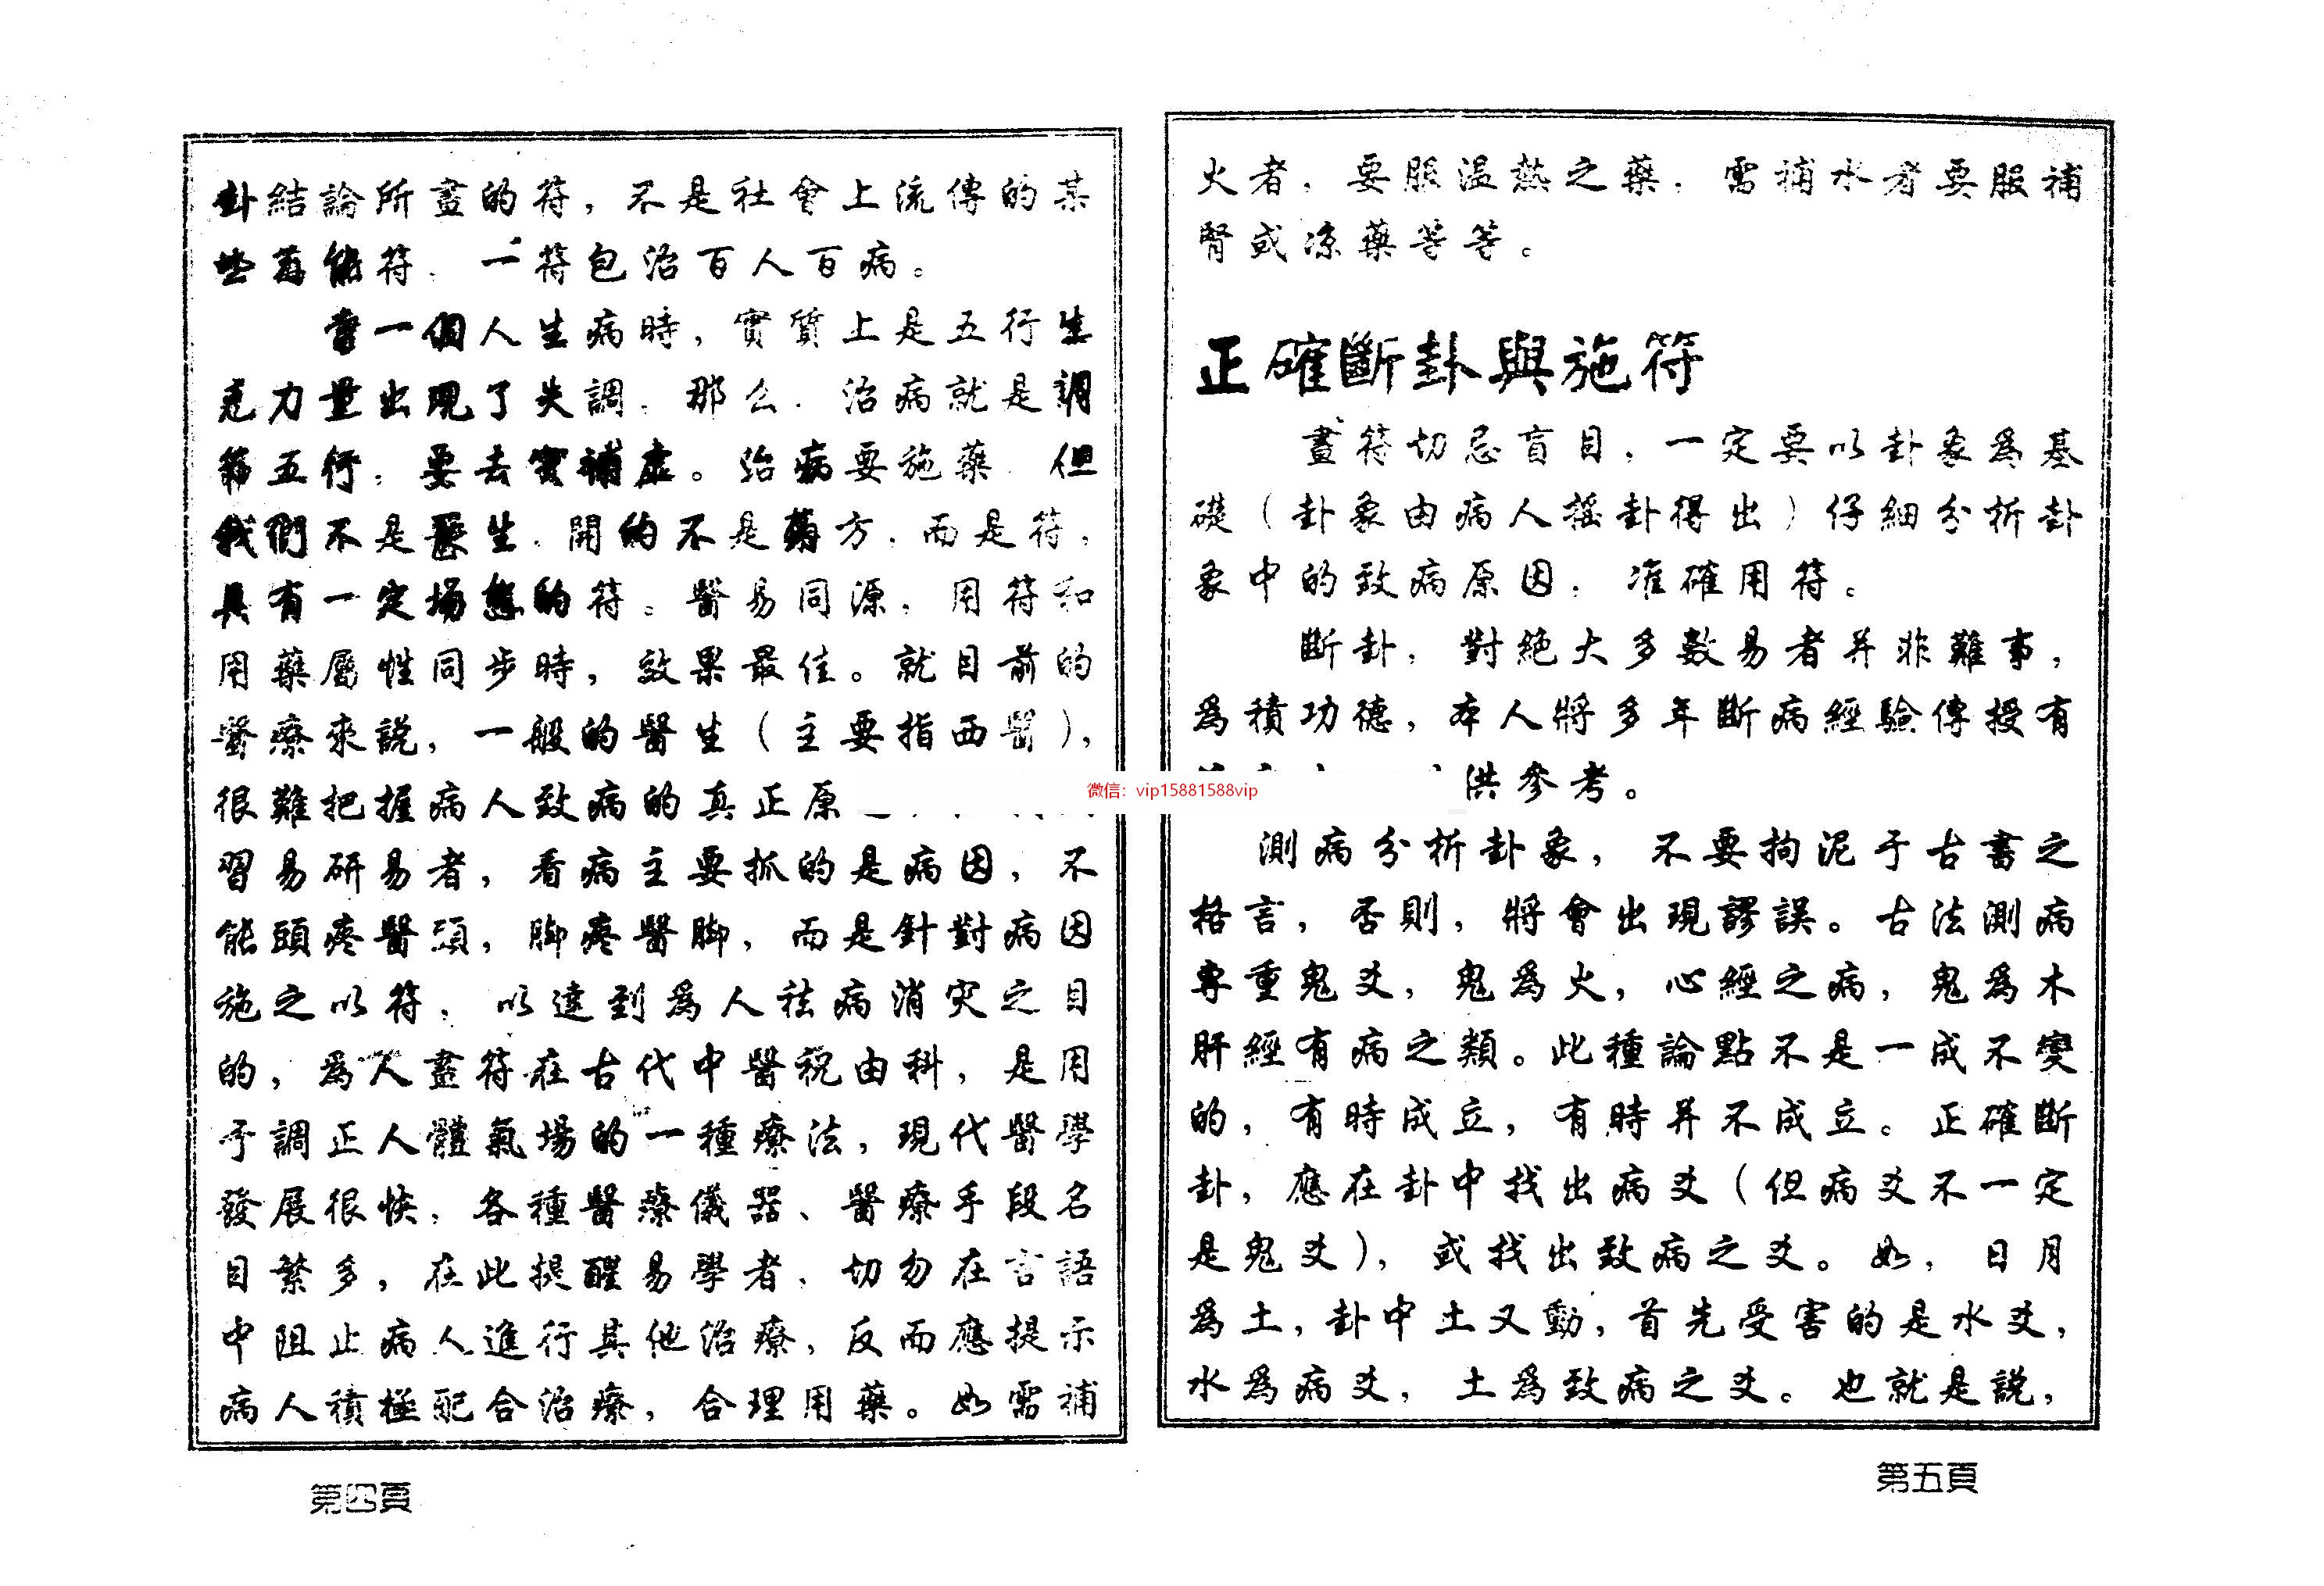 卦結論所畫的符，不是社會上流傳的某
些萬能符．一符包治百人百病。
當一個人生病時，實質上是五行生
克力量出現了失調．那么．治病就是調
節五行．要去實補虛。治病要施藥．但
我們不是醫生．開的不是藥方．而是符．
具有一定場態的符。醫易同源，用符和
用藥屬性同步時，效果最佳。就目前的
醫療來説，一般的醫生（主要指西醫），
很難把握病人致病的真正原
習易研易者，看病主要抓的是病因，不
能頭疼醫頭，脚疼醫脚，而是針對病因
施之以符，以達到爲人祛病消灾之目
的，爲人畫符在古代中醫祝由科，是用
于調正人體氣場的一種療法，現代醫學
發展很快，各種醫療儀器、醫療手段名
目繁多，在此提醒易學者．切勿在言語
中阻止病人進行其他治療，反而應提示
病人積極配合治療，合理用藥。如需補
第四頁
火者．要服温熱之藥．需補水者要服補
腎或凉藥等等。
正確斷卦與施符
畫符切忌盲目，一定要以卦象爲基
礎（卦象由病人摇卦得出）仔細分析卦
象中的致病原因．准確用符。
斷卦，對絶大多數易者并非難事，
爲積功德，本人將多年斷病經驗傳授有
洪參考。
微信：vip15881588vip
測病分析卦象，不要拘泥于古書之
格言，否則，將會出現謬誤。古法測病
專重鬼爻，鬼爲火，心經之病，鬼爲木
肝經有病之類。此種論點不是一成不變
的，有時成立，有時并不成立。正確斷
卦，應在卦中找出病爻（但病爻不一定
是鬼爻），或找出致病之爻。如，日月
爲土，卦中土又動，首先受害的是水爻，
水爲病爻，土爲致病之爻。也就是説，
第五頁